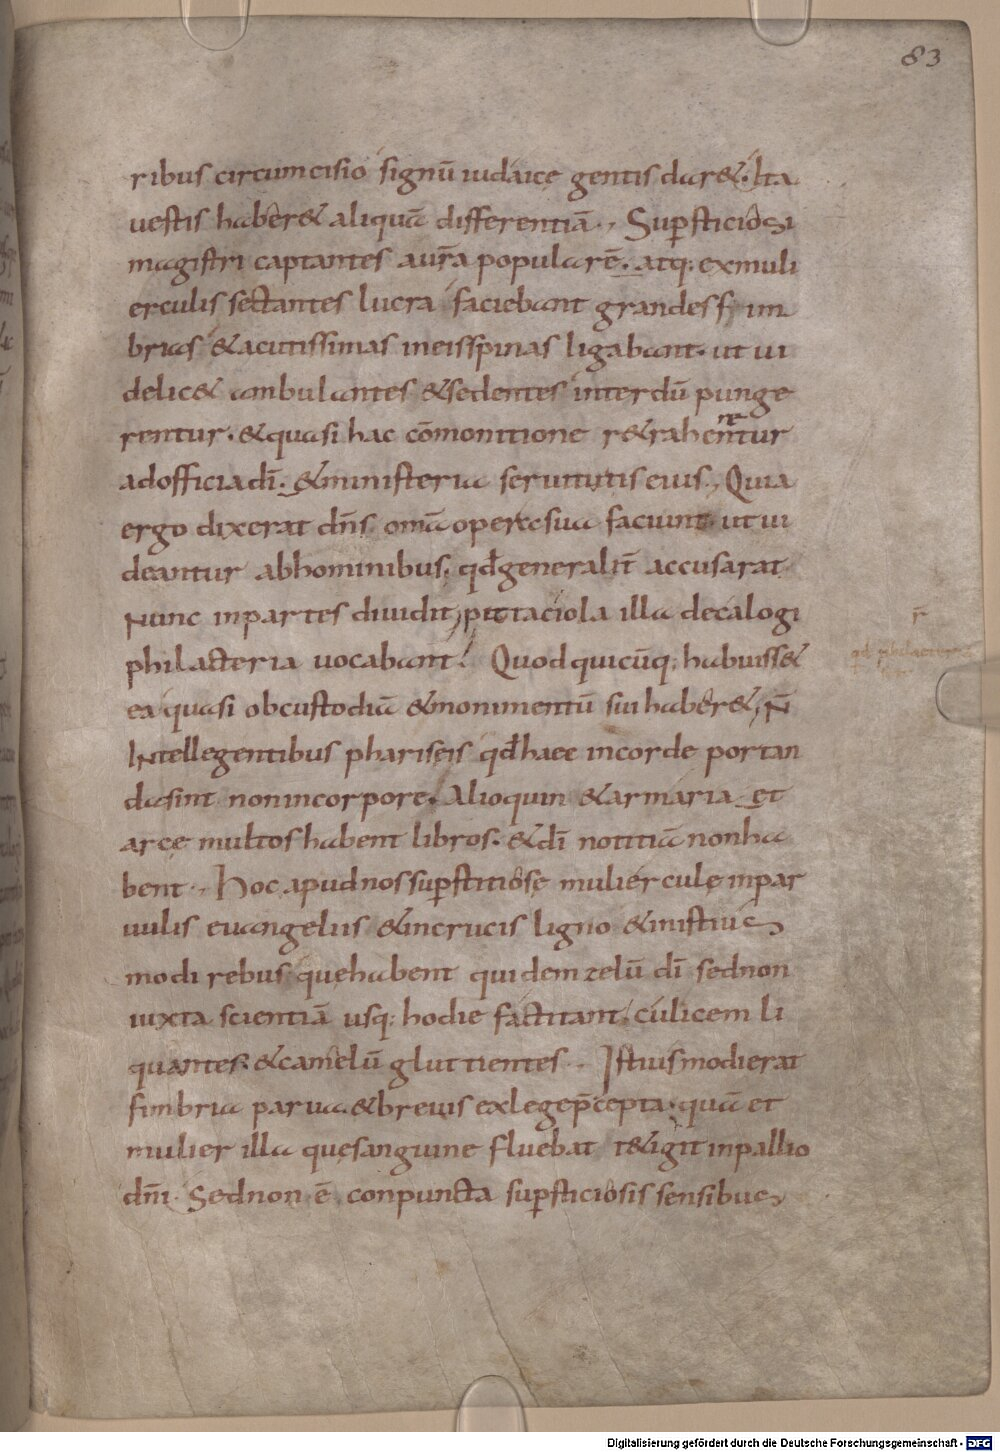 83
ribus circumcisio signū iudaicę gentis dar&. Ita
uestis haber& aliquā differentiā. Sup̄sticiosi
magistri captantes aurā popularē. atq; exmuli
erculis sectantes lucra faciebant grandes fim
brias &acutissimas ineisspinas ligabant. ut ui
delic& ambulantes &sedentes interdū punge
rentur. &quasi hac cōmonitione r&rahentur
adofficia dī. &ministeria seruitutis eius. Quia
ergo dixerat dn̄s omīa opera sua faciunt ut ui
deantur abhominibus. qđ generalit̄ accusarat
Nunc inpartes diuidit, pittaciola illa decalogi
philacteria uocabant. Quod quicūq; habuiss&
ea quasi obcustodiā &monimentū sui haber&, N̄
Intellegentibus phariseis qđ haec incorde portan
dasint nonincorpore. Alioquin &armaria et
arcę multos habent libros. &dī notitiā nonha
bent. Hoc apud nos sup̄stitiosę mulierculę inpar
uulis euangeliis &incrucis ligno &inistius
modi rebus quęhabent quidem zelū dī sednon
iuxta scientiā usq; hodie factitant, culicem li
quantes. &camelū gluttientes. Istiusmodierat
fimbria parua. &breuis exlege p̄cepta. quā et
mulier illa quęsanguine fluebat t&igit inpallio
dn̄i. Sednon ē conpuncta sup̄sticiosis sensibus
Digitalisierung gefördert durch die Deutsche Forschungsgemeinschaft - DFG